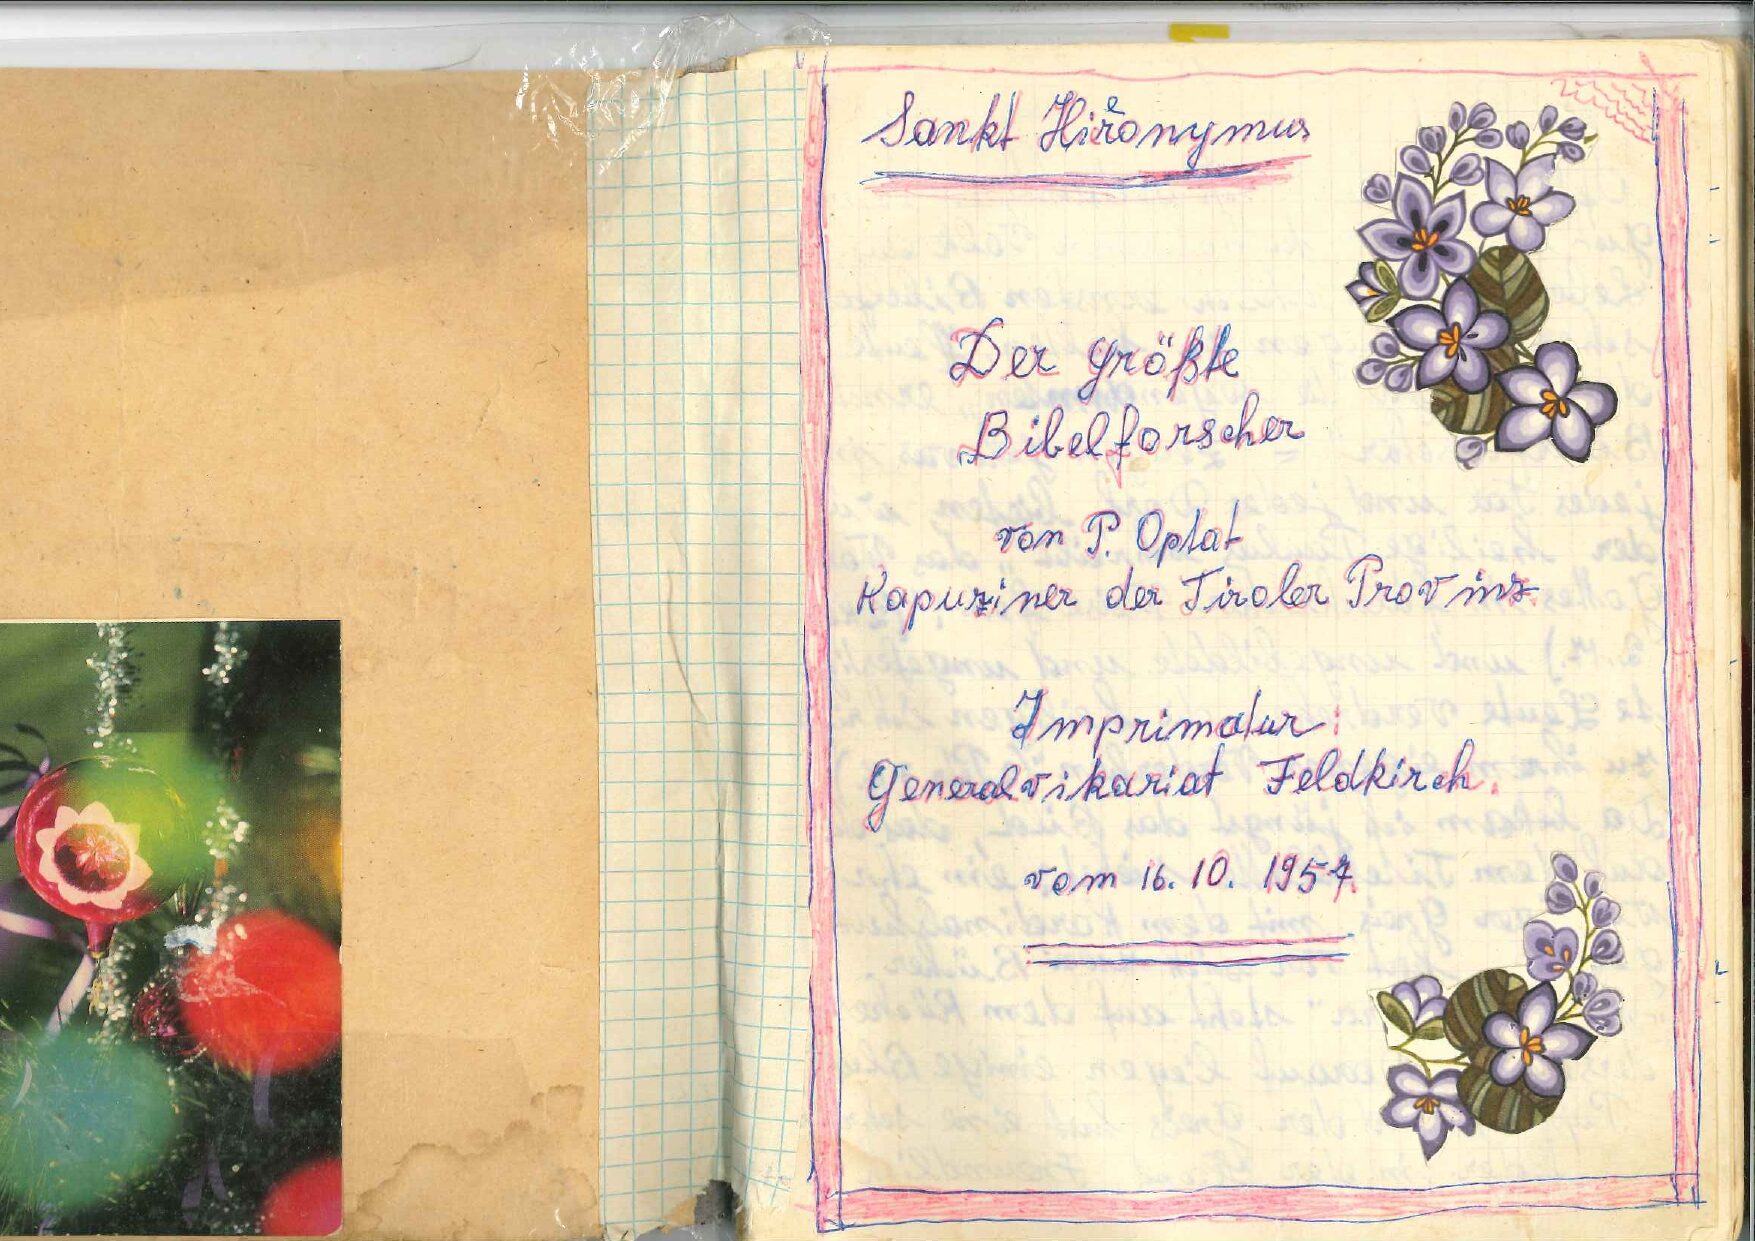 Sankt Hieronymus
Der größte
Bibelforscher
von P. Optat
Kapuziner der Tiroler Provinz.
Imprimatur:
Generalvikariat Feldkirch.
vom 16. 10. 1957.